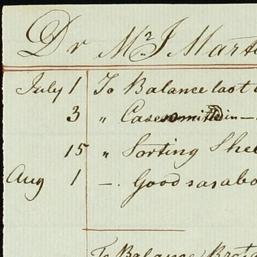 Dr Mr J Mart
July 1 To Balance last
3 " Cases omitted in —
15 " Sorting Shee
Aug 1 —. Goods as abo
To Balance Brot